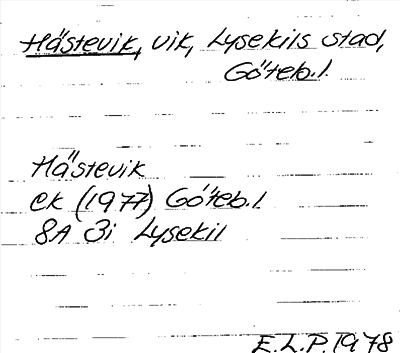 Hästevik, vik, Lysekils stad,
Göteb.l.
Hästevik
ek (1977) Göteb.l.
8A 3i Lysekil
E.L.P. 1978